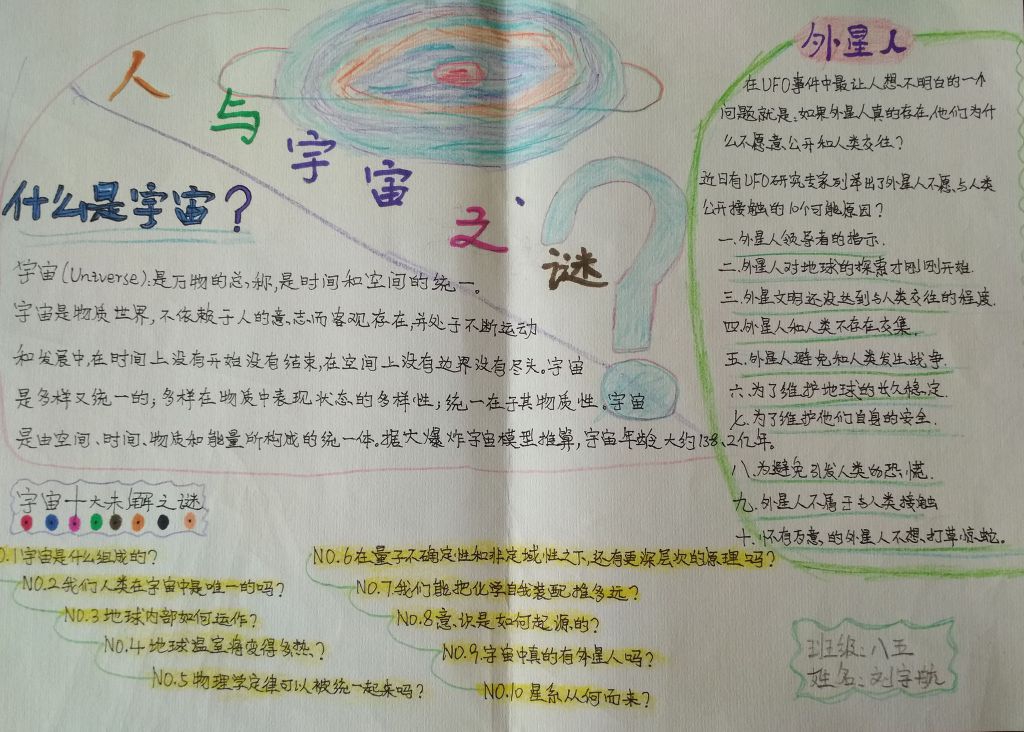 人与宇宙之谜
什么是宇宙?
宇宙(Universe):是万物的总称,是时间和空间的统一。
宇宙是物质世界,不依赖于人的意志而客观存在,并处于不断运动
和发展中,在时间上没有开始没有结束,在空间上没有边界没有尽头。宇宙
是多样又统一的;多样在物质中表现状态的多样性;统一在于其物质性。宇宙
是由空间、时间、物质和能量所构成的统一体。据大爆炸宇宙模型推算,宇宙年龄大约138.2亿年。
宇宙十大未解之谜
O.1宇宙是什么组成的?
NO.2我们人类在宇宙中是唯一的吗?
NO.3地球内部如何运作?
NO.4地球温室将变得多热?
NO.5物理学定律可以被统一起来吗?
NO.6在量子不确定性和非定域性之下,还有更深层次的原理吗?
NO.7我们能把化学自我装配推多远?
NO.8意识是如何起源的?
NO.9宇宙中真的有外星人吗?
NO.10星系从何而来?
外星人
在UFO事件中最让人想不明白的一个
问题就是:如果外星人真的存在,他们为什
么不愿意公开和人类交往?
近日有UFO研究专家列举出了外星人不愿与人类
公开接触的10个可能原因?
一.外星人领导者的指示.
二.外星人对地球的探索才刚刚开始.
三.外星文明还没达到与人类交往的程度.
四.外星人和人类不存在交集.
五.外星人避免和人类发生战争.
六.为了维护地球的长久稳定.
七.为了维护他们自身的安全.
八.为避免引发人类的恐慌.
九.外星人不屑于与人类接触
十.怀有歹意的外星人不想打草惊蛇。
班级:八五
姓名:刘宇航